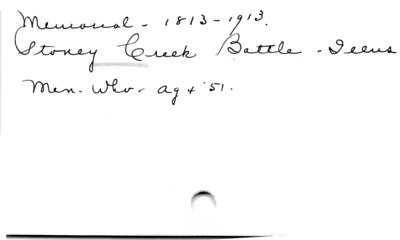 Memorial - 1813-1913.
Stoney Creek Battle - Illus
Men. Who - ag + '51.